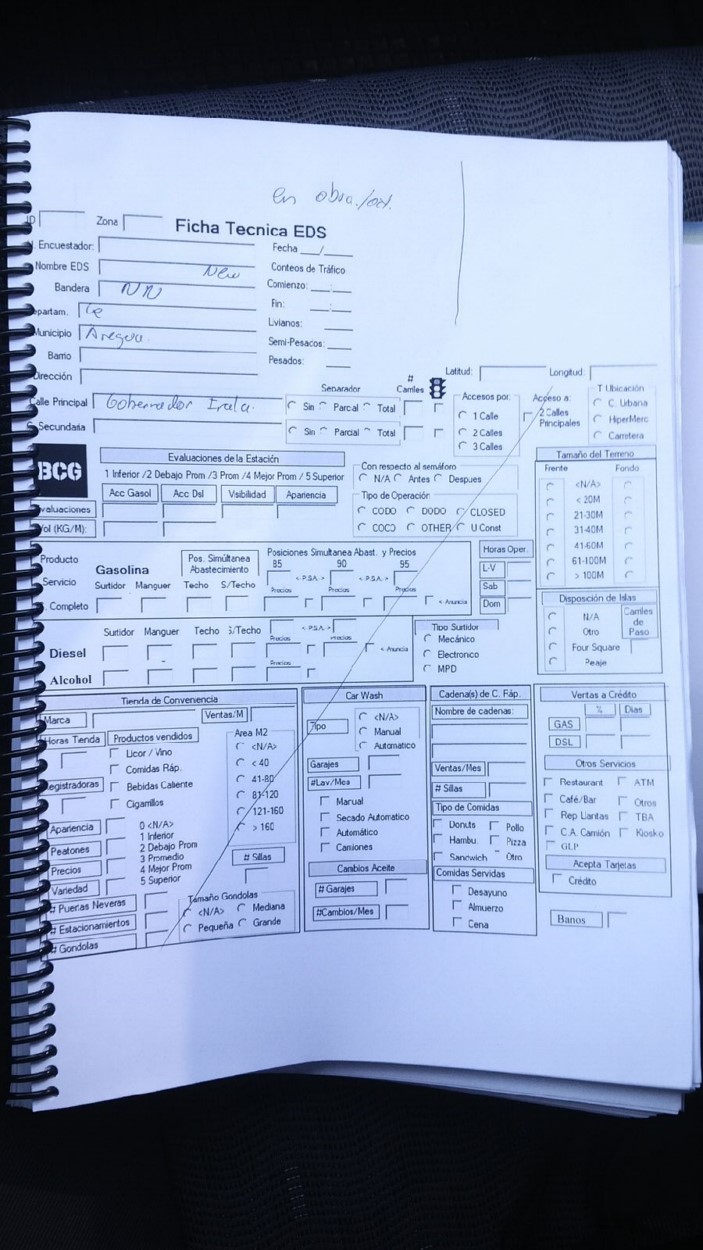 en obra./
Zona
Ficha Tecnica EDS
Encuestador:
Fecha __/__
Nombre EDS New
Conteos de Tráfico
Bandera NN
Comienzo: __:__
Fin: __:__
epartam.
Lvianos:
Municipio Aregua.
Semi-Pesacos:
Barrio
Pesados:
Dirección
Latitud: Longitud:
Separador # Carriles
Accesos por: Acceso a: T Ubicación
Calle Principal Gobernador Irala.
Sin Parcal Total
1 Calle 2 Calles Principales C. Urbana
Secundaria
Sin Parcial Total
2 Calles HiperMerc
3 Calles Carretera
BCG
Evaluaciones de la Estación
1 Inferior /2 Debajo Prom /3 Prom /4 Mejor Prom / 5 Superior
Acc Gasol Acc Dsl Visibilidad Apariencia
valuaciones
ol (KG/M):
Con respecto al semáforo
N/A Antes Despues
Tipo de Operación
CODO DODO CLOSED
COCO OTHER U Const
Tamaño del Terreno
Frente Fondo
<N/A>
< 20M
21-30M
31-40M
41-60M
61-100M
> 100M
Producto
Servicio
Completo
Gasolina
Pos. Simúltanea Abastecimiento
Posiciones Simultanea Abast. y Precios
85 90 95
Surtidor Manguer Techo S/Techo
< P.S.A. > < P.S.A. >
Precios Precios Precios
< Anuncia
Horas Oper.
L-V
Sab
Dom
Surtidor Manguer Techo S/Techo
< P.S.A. >
Precios
Diesel
< Anuncia
Precios
Alcohol
Tipo Surtidor
Mecánico
Electronco
MPD
Disposción de Islas
N/A
Otro
Four Square
Peaje
Carriles de Paso
Tienda de Convenencia
Marca Ventas/M
Horas Tienda Productos vendidos
Licor / Vino
Comidas Ráp.
egistradoras Bebidas Caliente
Cigarrilos
Area M2
<N/A>
< 40
41-80
81-120
121-160
> 160
Apariencia
Peatones
Precios
Variedad
0 <N/A>
1 Inferior
2 Debajo Prom
3 Promedio
4 Mejor Prom
5 Superior
# Sillas
# Puertas Neveras
# Estacionamientos
# Gondolas
Tamaño Gondolas
<N/A> Mediana
Pequeña Grande
Car Wash
Tipo
<N/A>
Manual
Automatico
Garajes
#Lav/Mes
Manual
Secado Automatico
Automático
Camiones
Cambios Aceite
# Garajes
#Cambios/Mes
Cadena(s) de C. Ráp.
Nombre de cadenas:
Ventas/Mes
# Sillas
Tipo de Comidas
Donuts Pollo
Hambu. Pizza
Sandwich Otro
Comidas Servidas
Desayuno
Almuerzo
Cena
Ventas a Crédito
% Dias
GAS
DSL
Otros Servicios
Restaurant ATM
Café/Bar Otros
Rep Llantas TBA
C.A. Camión Kiosko
GLP
Acepta Tarjetas
Crédito
Banos